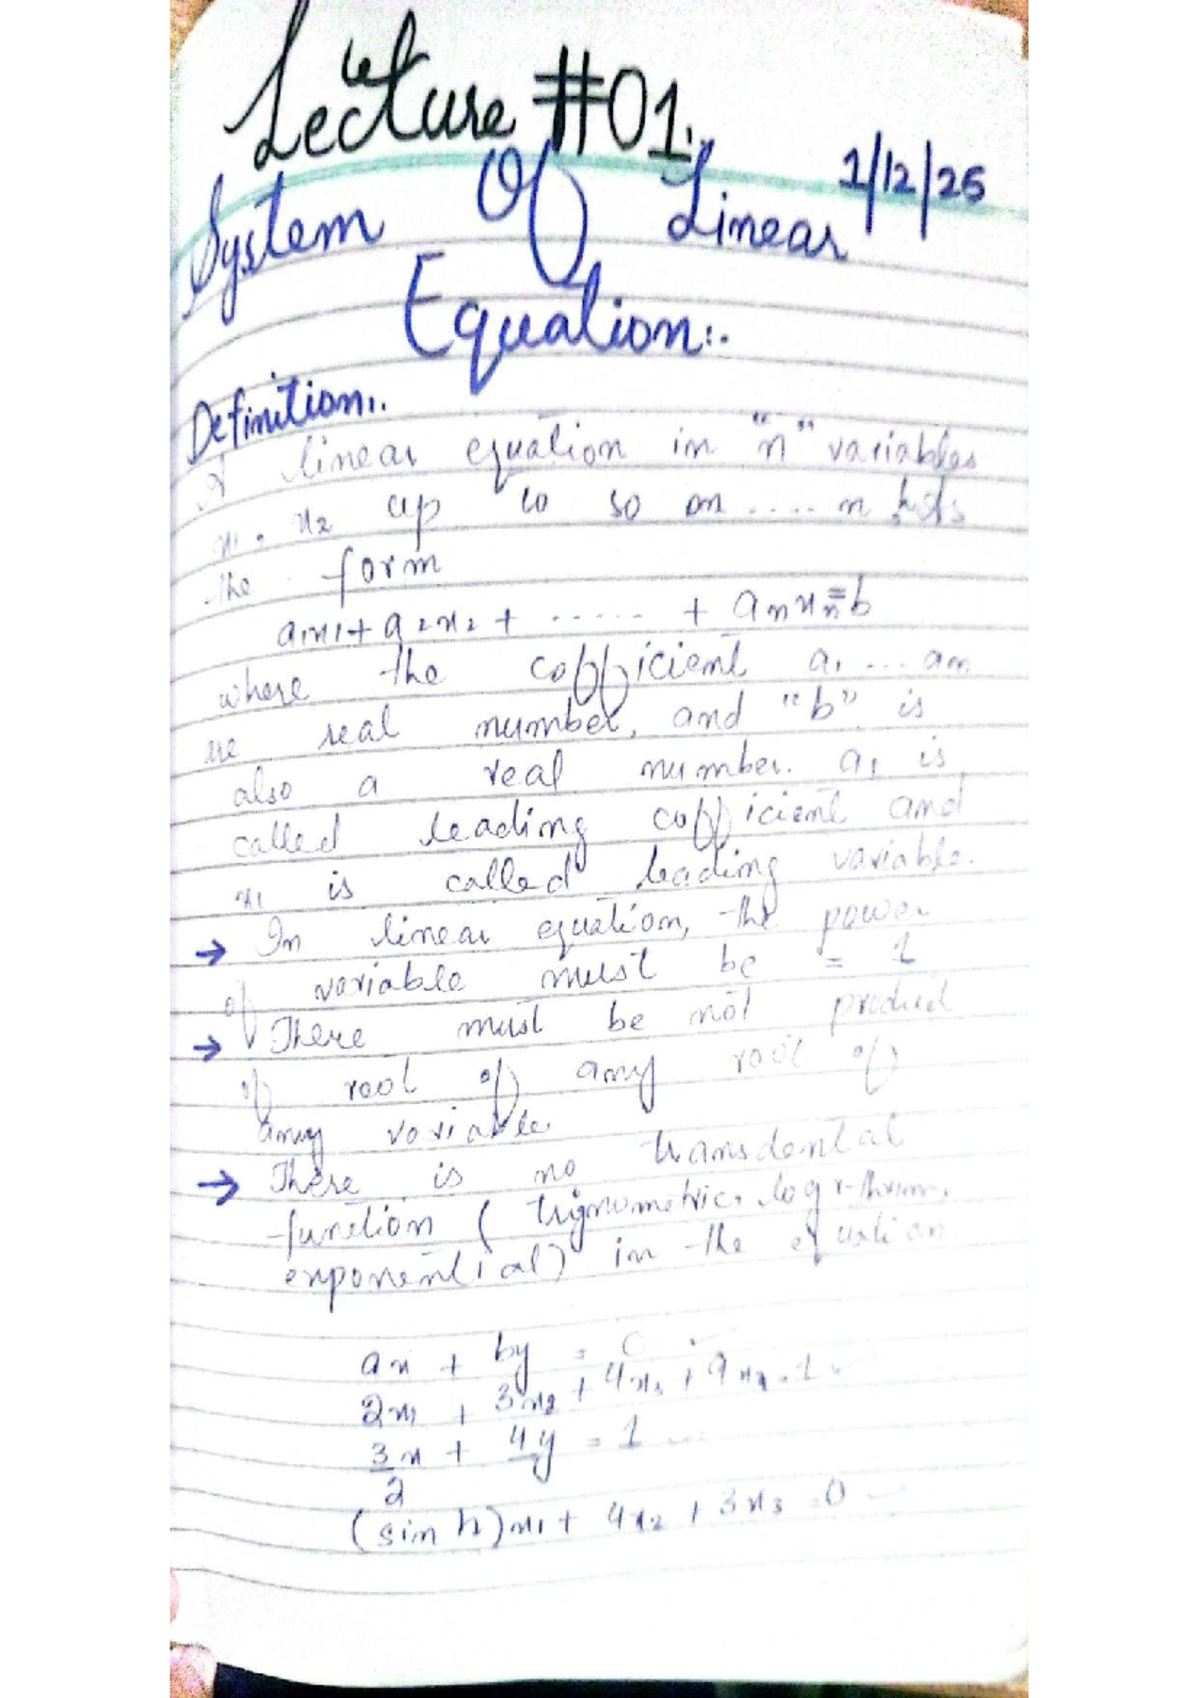 Lecture #01.
1/12/25
System Of Linear
Equation:.
Definition:.
A linear equation in "n" variables
x1, x2 up to so on .... n has
the form
a1x1 + a2x2 + ..... + anxn = b
where the cofficient a1 ... an
are real number, and "b" is
also a real number. a1 is
called leading cofficient and
x1 is called leading variable.
→ In linear equation, the power
of variable must be = 1
→ There must be not product
of root of any root of
any variable.
→ There is no transdental
function ( trignometric, logrithm,
exponential) in the equation
ax + by = 0
2x1 + 3x2 + 4x3 + 9x4 = 1
3/2 x + 4y = 1
(sin h)x1 + 4x2 + 3x3 = 0